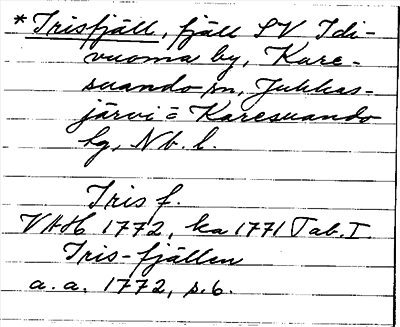 *Irisfjäll, fjäll SV Idi-
vuoma by, Kare-
suando sn, Jukkas-
järvi = Karesuando
lg, Nb. l.
Iris f.
VAH 1772, ka 1771 Tab. I.
Iris-fjällen
a. a. 1772, s. 6.